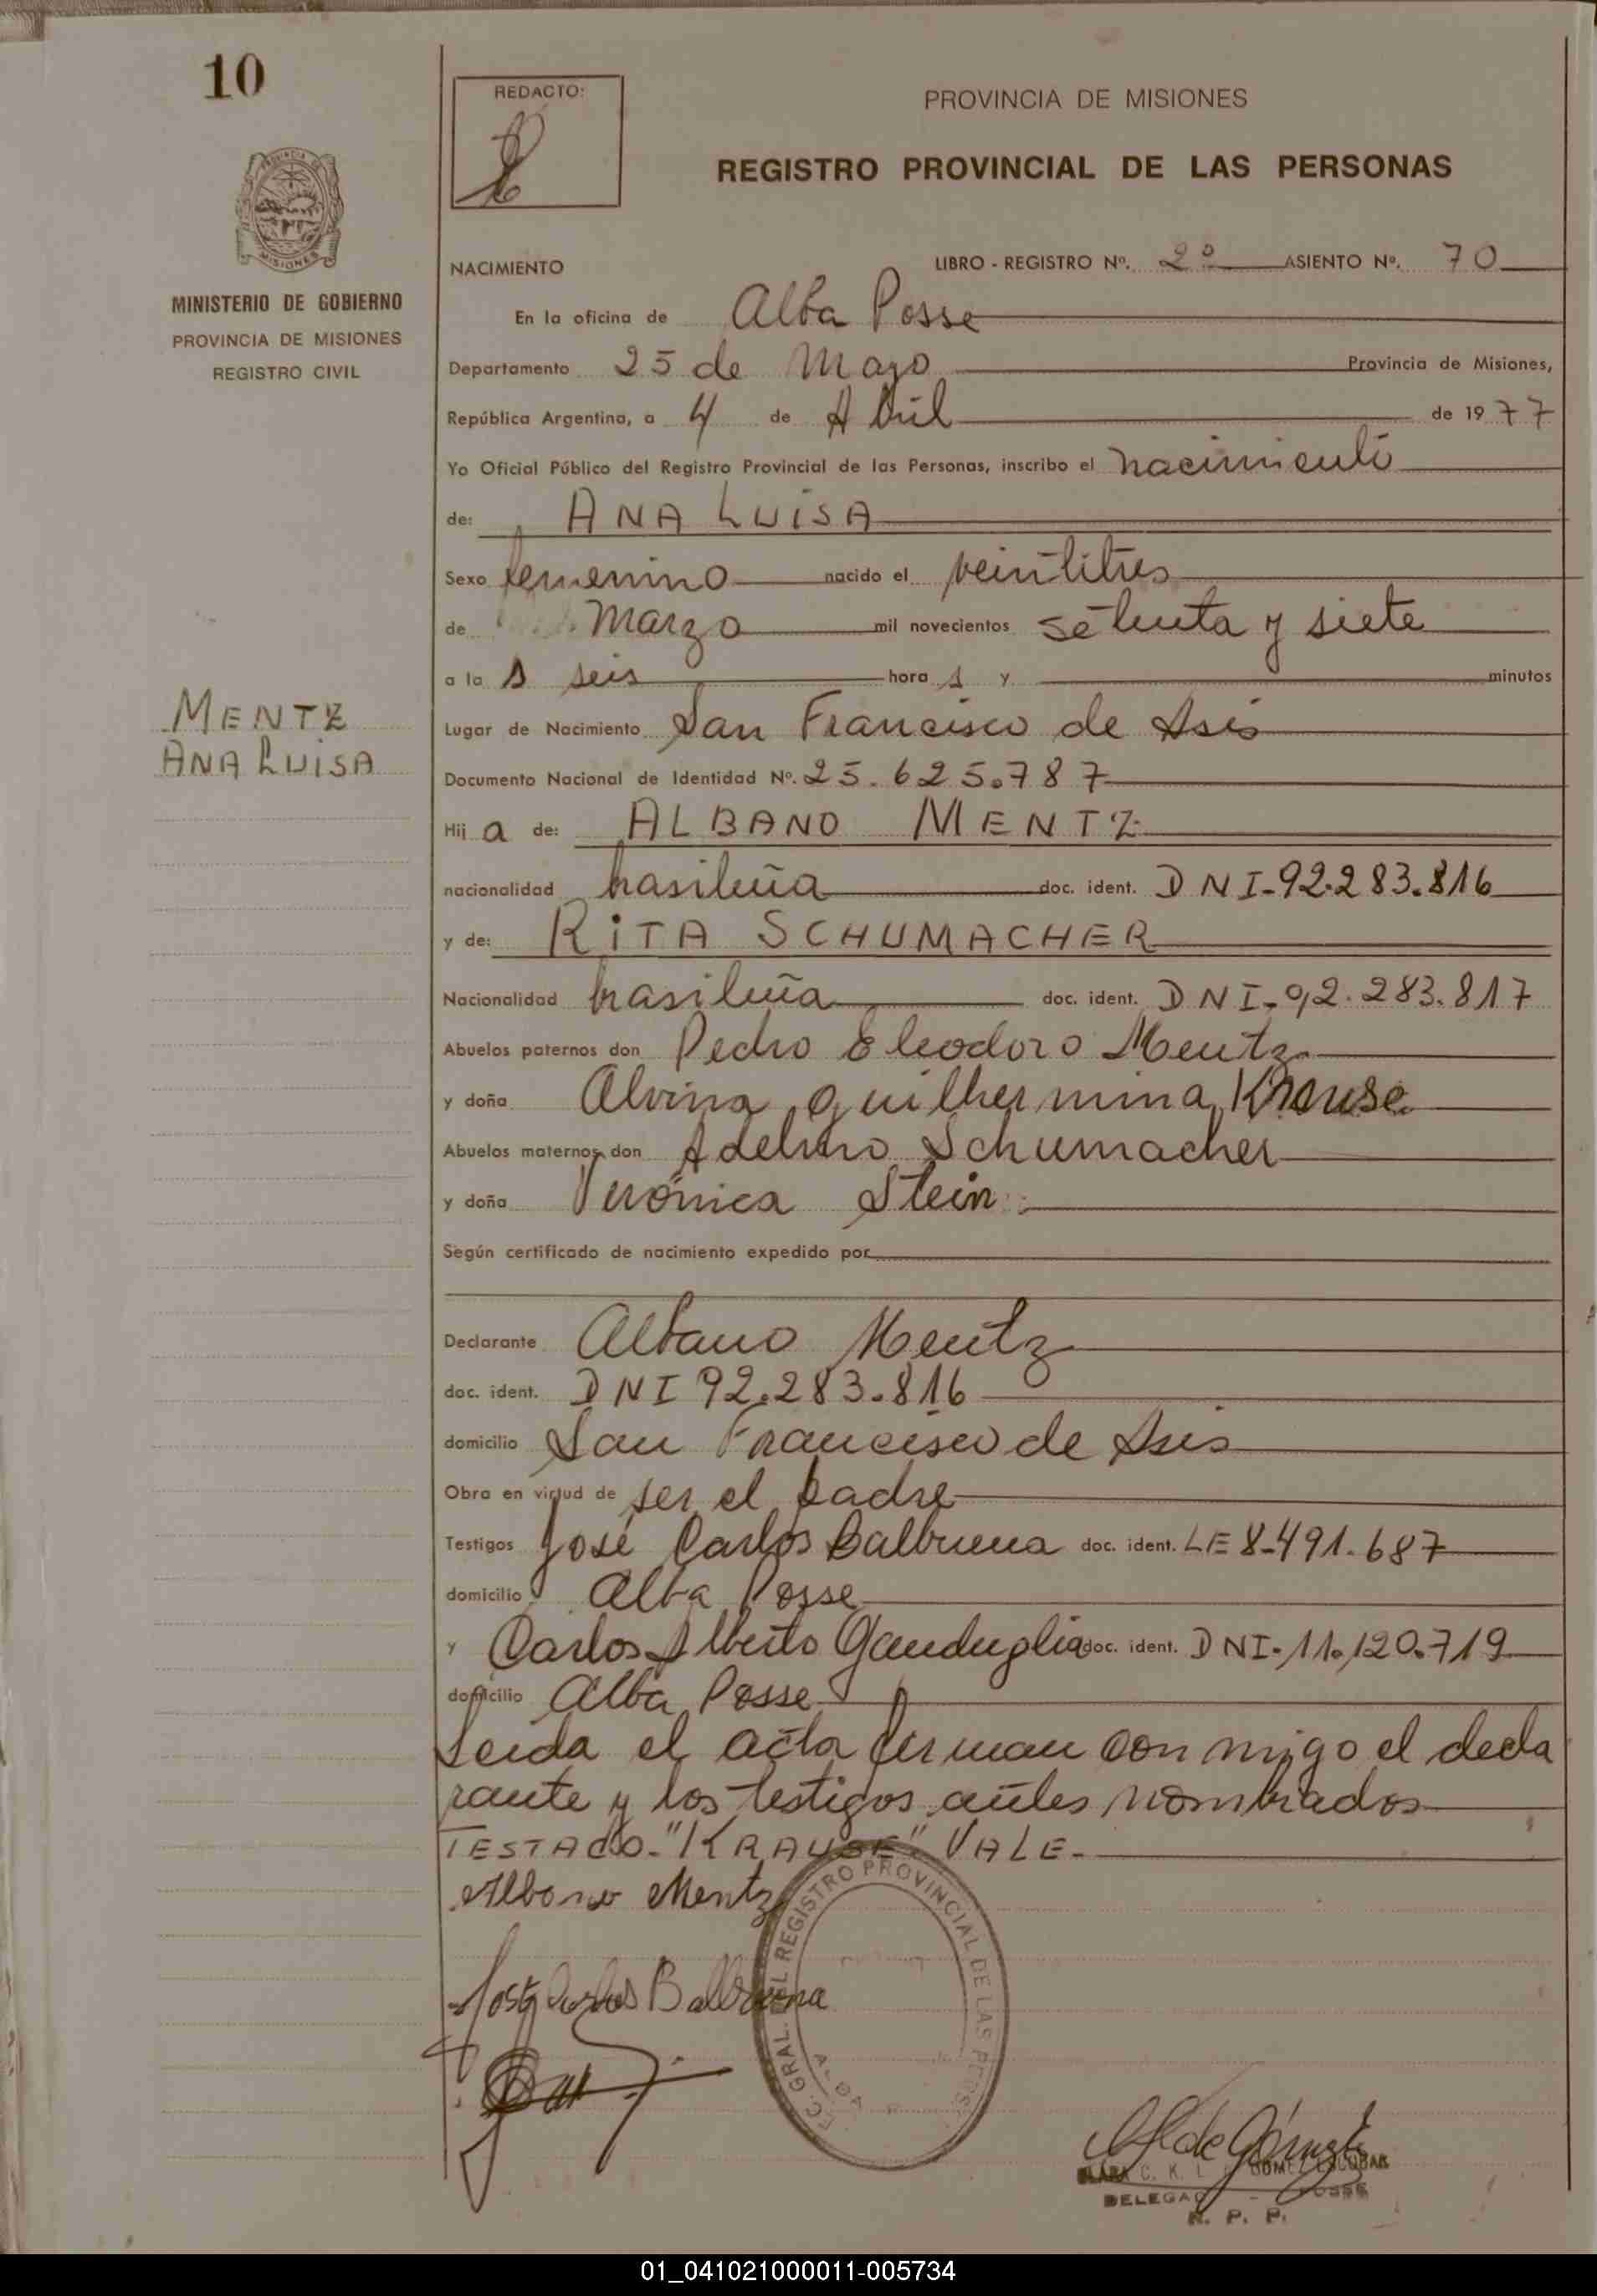 10
REDACTO:
PROVINCIA DE MISIONES
REGISTRO PROVINCIAL DE LAS PERSONAS
MISIONES
MINISTERIO DE GOBIERNO
PROVINCIA DE MISIONES
REGISTRO CIVIL
NACIMIENTO LIBRO - REGISTRO Nº. 2º ASIENTO Nº. 70
En la oficina de Alba Posse
Departamento 25 de Mayo Provincia de Misiones,
República Argentina, a 4 de Abril de 1977
Yo Oficial Público del Registro Provincial de las Personas, inscribo el nacimiento
de: ANA LUISA
Sexo femenino nacido el veintitres
de Marzo mil novecientos setenta y siete
a la s seis hora s y minutos
MENTZ
ANA LUISA
Lugar de Nacimiento San Francisco de Asis
Documento Nacional de Identidad Nº. 25.625.787
Hij a de: ALBANO MENTZ
nacionalidad brasileña doc. ident. DNI-92.283.816
y de: RITA SCHUMACHER
Nacionalidad brasileña doc. ident. DNI-92.283.817
Abuelos paternos don Pedro Eleodoro Mentz
y doña Alvina Guilhermina Krause
Abuelos maternos don Adelino Schumacher
y doña Verónica Stein
Según certificado de nacimiento expedido por
Declarante Albano Mentz
doc. ident. DNI 92.283.816
domicilio San Francisco de Asis
Obra en virtud de ser el padre
Testigos José Carlos Balbuena doc. ident. LE 8-491.687
domicilio Alba Posse
y Carlos Alberto Ganduglia doc. ident. DNI-11.120.719
domicilio Alba Posse
Leida el acta firman con migo el decla
rante y los testigos antes nombrados
TESTADO-"KRAUSE" VALE-
Albano Mentz
REGISTRO PROVINCIAL DE LAS PERS.
José Carlos Balbuena
GOMEZ ESCOBAR
R. P. P.
01_041021000011-005734